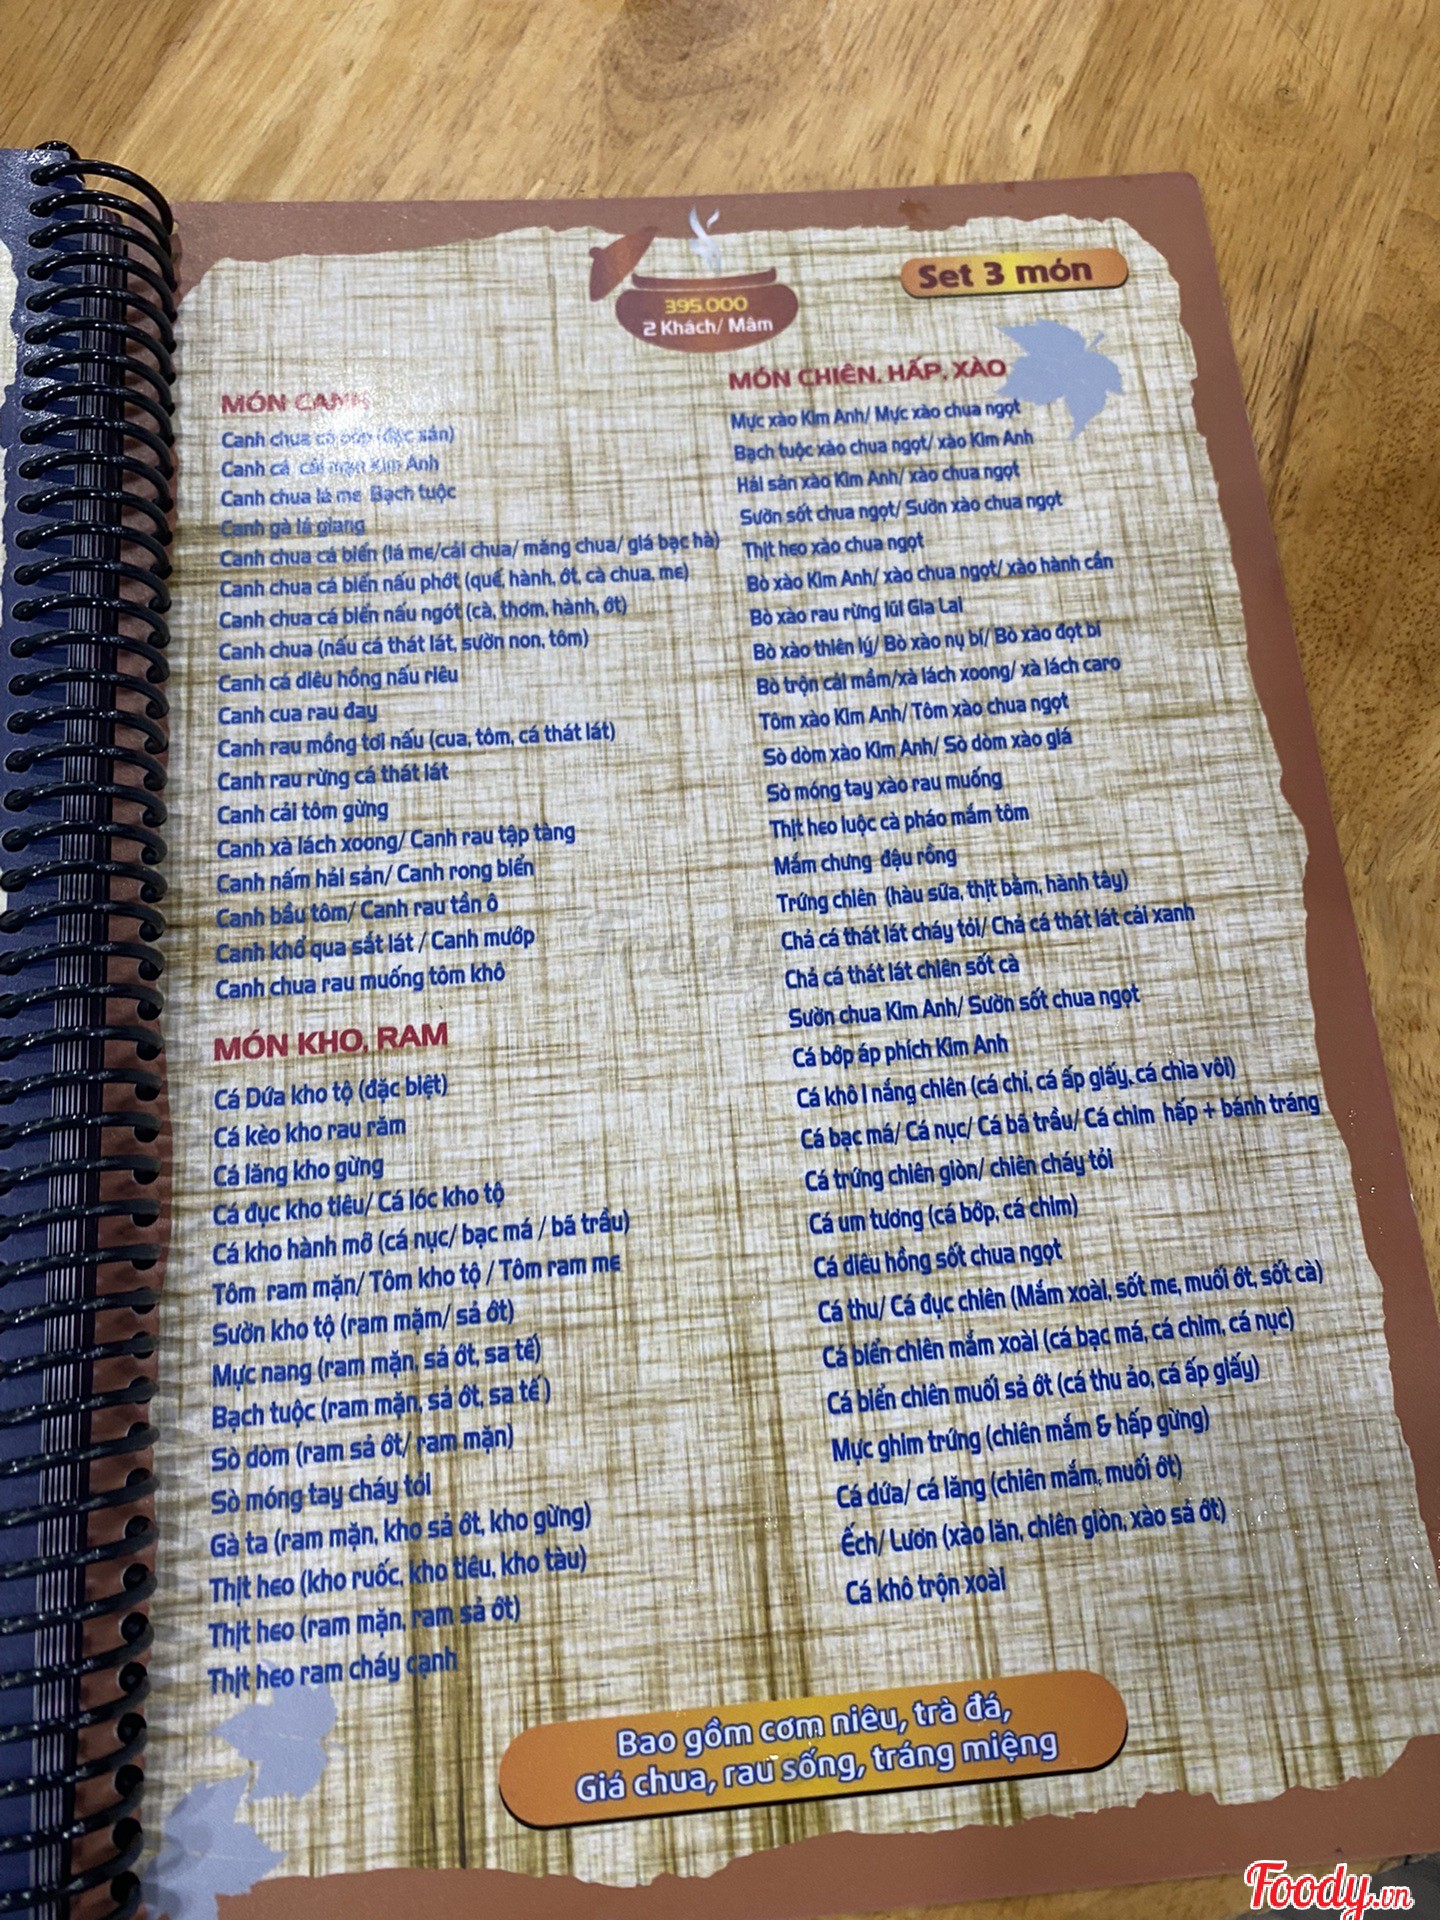 Set 3 món
395.000
2 Khách/ Mâm
MÓN CANH
Canh chua cá bớp (đặc sản)
Canh cá cải mặn Kim Anh
Canh chua lá me Bạch tuộc
Canh gà lá giang
Canh chua cá biển (lá me/cải chua/ măng chua/ giá bạc hà)
Canh chua cá biển nấu phớt (quế, hành, ớt, cà chua, me)
Canh chua cá biển nấu ngót (cà, thơm, hành, ớt)
Canh chua (nấu cá thát lát, sườn non, tôm)
Canh cá diêu hồng nấu riêu
Canh cua rau đay
Canh rau mồng tơi nấu (cua, tôm, cá thát lát)
Canh rau rừng cá thát lát
Canh cải tôm gừng
Canh xà lách xoong/ Canh rau tập tàng
Canh nấm hải sản/ Canh rong biển
Canh bầu tôm/ Canh rau tần ô
Canh khổ qua sắt lát / Canh mướp
Canh chua rau muống tôm khô
MÓN KHO, RAM
Cá Dứa kho tộ (đặc biệt)
Cá kèo kho rau răm
Cá lăng kho gừng
Cá đục kho tiêu/ Cá lóc kho tộ
Cá kho hành mỡ (cá nục/ bạc má / bã trầu)
Tôm ram mặn/ Tôm kho tộ / Tôm ram me
Sườn kho tộ (ram mặm/ sả ớt)
Mực nang (ram mặn, sả ớt, sa tế)
Bạch tuộc (ram mặn, sả ớt, sa tế )
Sò dòm (ram sả ớt/ ram mặn)
Sò móng tay cháy tỏi
Gà ta (ram mặn, kho sả ớt, kho gừng)
Thịt heo (kho ruốc, kho tiêu, kho tàu)
Thịt heo (ram mặn, ram sả ớt)
Thịt heo ram cháy cạnh
MÓN CHIÊN, HẤP, XÀO
Mực xào Kim Anh/ Mực xào chua ngọt
Bạch tuộc xào chua ngọt/ xào Kim Anh
Hải sản xào Kim Anh/ xào chua ngọt
Sườn sốt chua ngọt/ Sườn xào chua ngọt
Thịt heo xào chua ngọt
Bò xào Kim Anh/ xào chua ngọt/ xào hành cần
Bò xào rau rừng lũi Gia Lai
Bò xào thiên lý/ Bò xào nụ bí/ Bò xào đọt bí
Bò trộn cải mầm/xà lách xoong/ xà lách caro
Tôm xào Kim Anh/ Tôm xào chua ngọt
Sò dòm xào Kim Anh/ Sò dòm xào giá
Sò móng tay xào rau muống
Thịt heo luộc cà pháo mắm tôm
Mắm chưng đậu rồng
Trứng chiên (hàu sữa, thịt bằm, hành tây)
Chả cá thát lát cháy tỏi/ Chả cá thát lát cải xanh
Chả cá thát lát chiên sốt cà
Sườn chua Kim Anh/ Sườn sốt chua ngọt
Cá bớp áp phích Kim Anh
Cá khô 1 nắng chiên (cá chỉ, cá ấp giấy, cá chìa vôi)
Cá bạc má/ Cá nục/ Cá bã trầu/ Cá chim hấp + bánh tráng
Cá trứng chiên giòn/ chiên cháy tỏi
Cá um tương (cá bớp, cá chim)
Cá diêu hồng sốt chua ngọt
Cá thu/ Cá đục chiên (Mắm xoài, sốt me, muối ớt, sốt cà)
Cá biển chiên mắm xoài (cá bạc má, cá chim, cá nục)
Cá biển chiên muối sả ớt (cá thu ảo, cá ấp giấy)
Mực ghim trứng (chiên mắm & hấp gừng)
Cá dứa/ cá lăng (chiên mắm, muối ớt)
Ếch/ Lươn (xào lăn, chiên giòn, xào sả ớt)
Cá khô trộn xoài
Bao gồm cơm niêu, trà đá,
Giá chua, rau sống, tráng miệng
Foody.vn